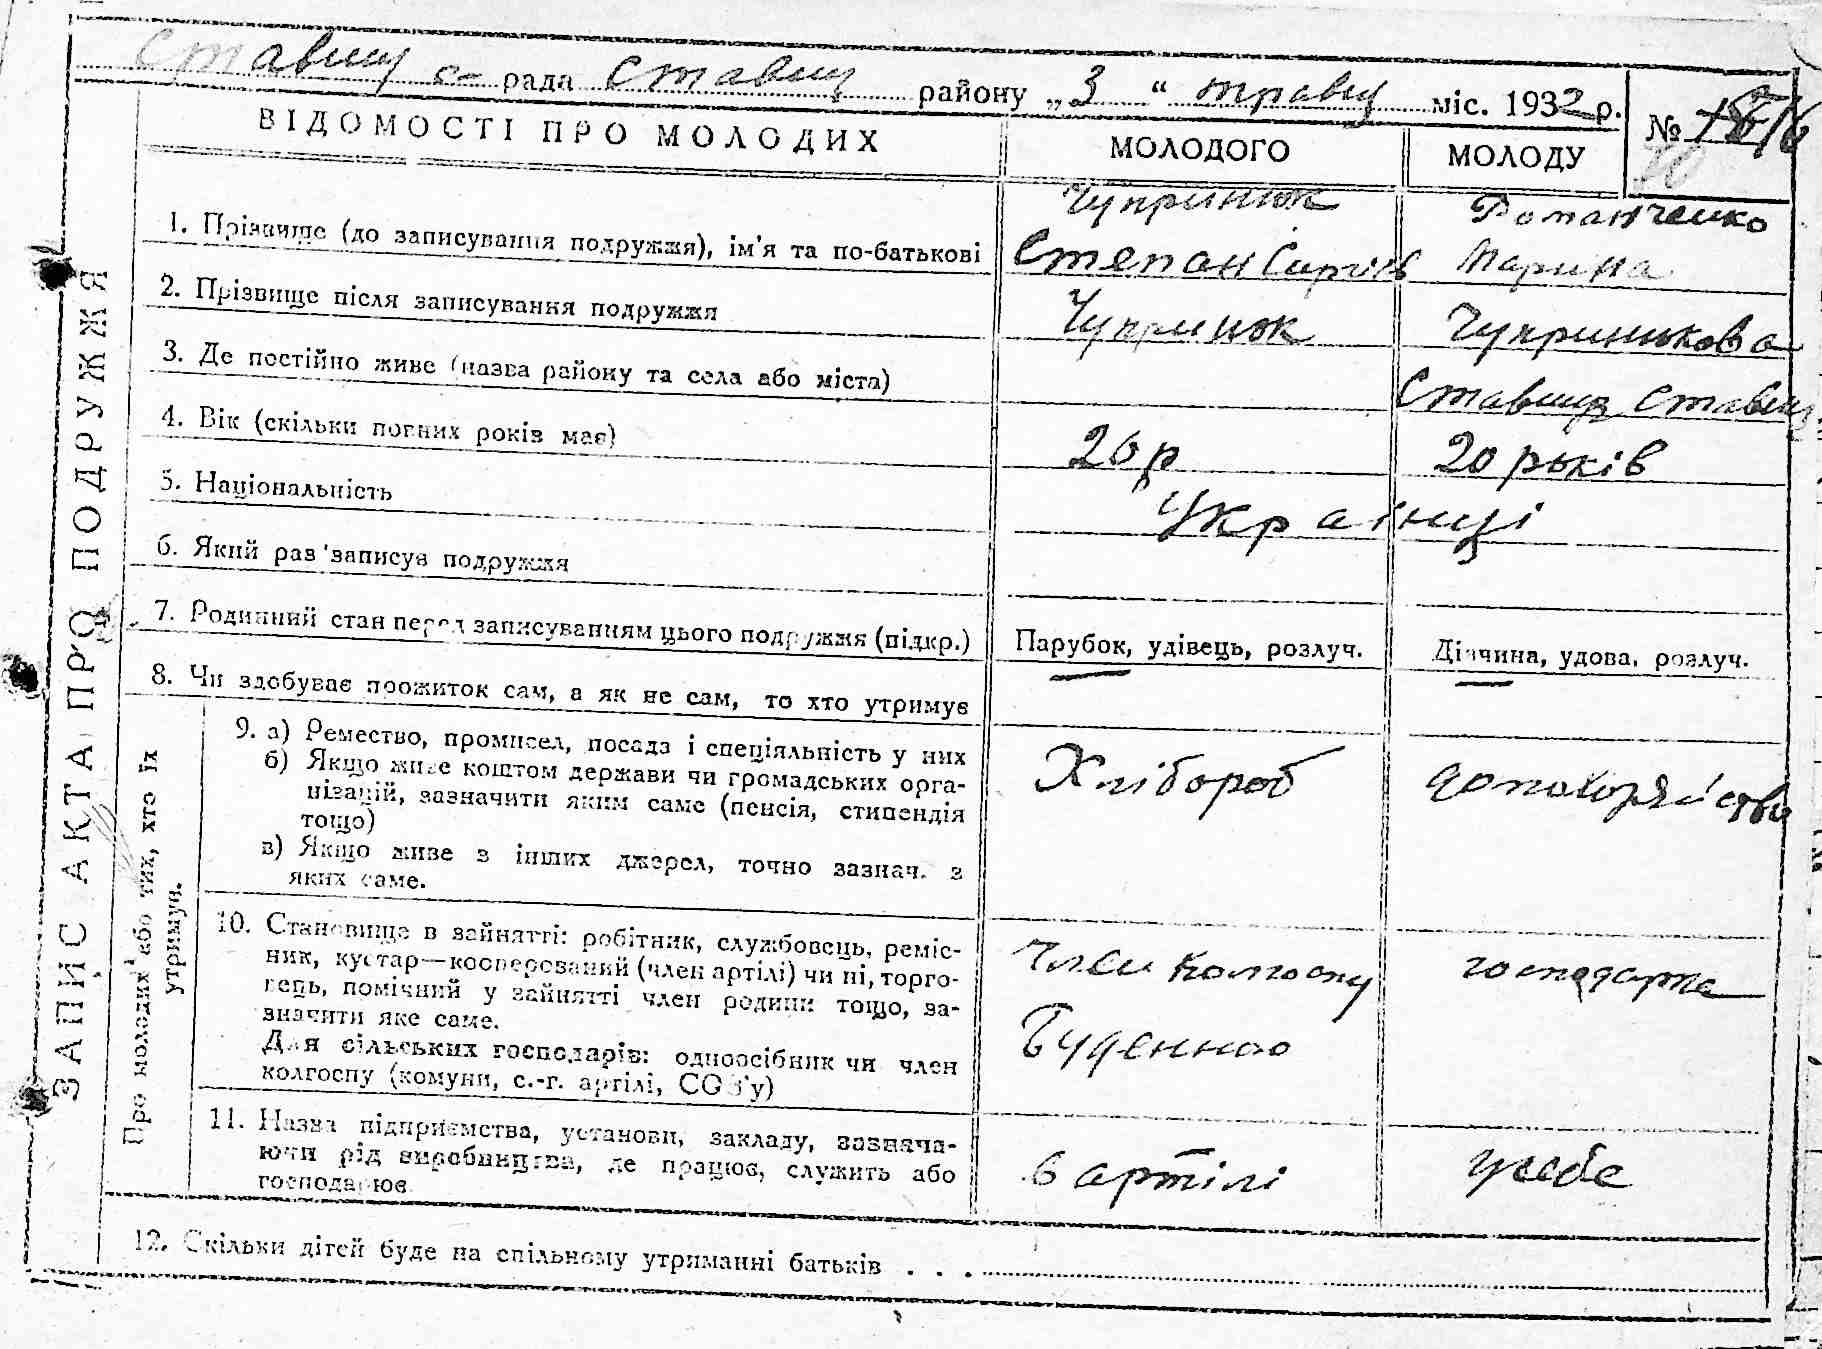 Ставищ с- рада Ставищ району „3“ травц міс. 1932 р.
№ 16
ЗАПИС АКТА ПРО ПОДРУЖЖЯ
ВІДОМОСТІ ПРО МОЛОДИХ
МОЛОДОГО
МОЛОДУ
1. Прізвище (до записування подружжя), ім'я та по-батькові
Чупринюк
Степан
Романченко
Марина
2. Прізвище після записування подружжя
Чупринюк
Чупринюкова
3. Де постійно живе (назва району та села або міста)
Ставищ Ставищ
4. Вік (скільки повних років має)
26 р
20 років
5. Національність
Українці
6. Який раз записує подружжя
7. Родинний стан перед записуванням цього подружжя (підкр.)
Парубок, удівець, розлуч.
Дівчина, удова, розлуч.
8. Чи здобуває прожиток сам, а як не сам, то хто утримує
Про молодих або тих, хто їх
утримуч.
9. а) Ремество, промисел, посада і спеціяльність у них
б) Якщо живе коштом держави чи громадських орга-
нізацій, зазначити яким саме (пенсія, стипендія
тощо)
в) Якщо живе з інших джерел, точно зазнач. з
яких саме.
Хлібороб
10. Становище в зайнятті: робітник, службовець, реміс-
ник, кустар—кооперований (член артілі) чи ні, торго-
вець, помічний у зайнятті член родини тощо, за-
значити яке саме.
Для сільських господарів: одноосібник чи член
колгоспу (комуни, с.-г. артілі, СОЗ'у)
Член колгоспу
Буденного
господарка
11. Назва підприємства, установи, закладу, зазнача-
ючи рід виробництва, де працює, служить або
господарює
в артілі
у себе
12. Скільки дітей буде на спільному утриманні батьків . . .